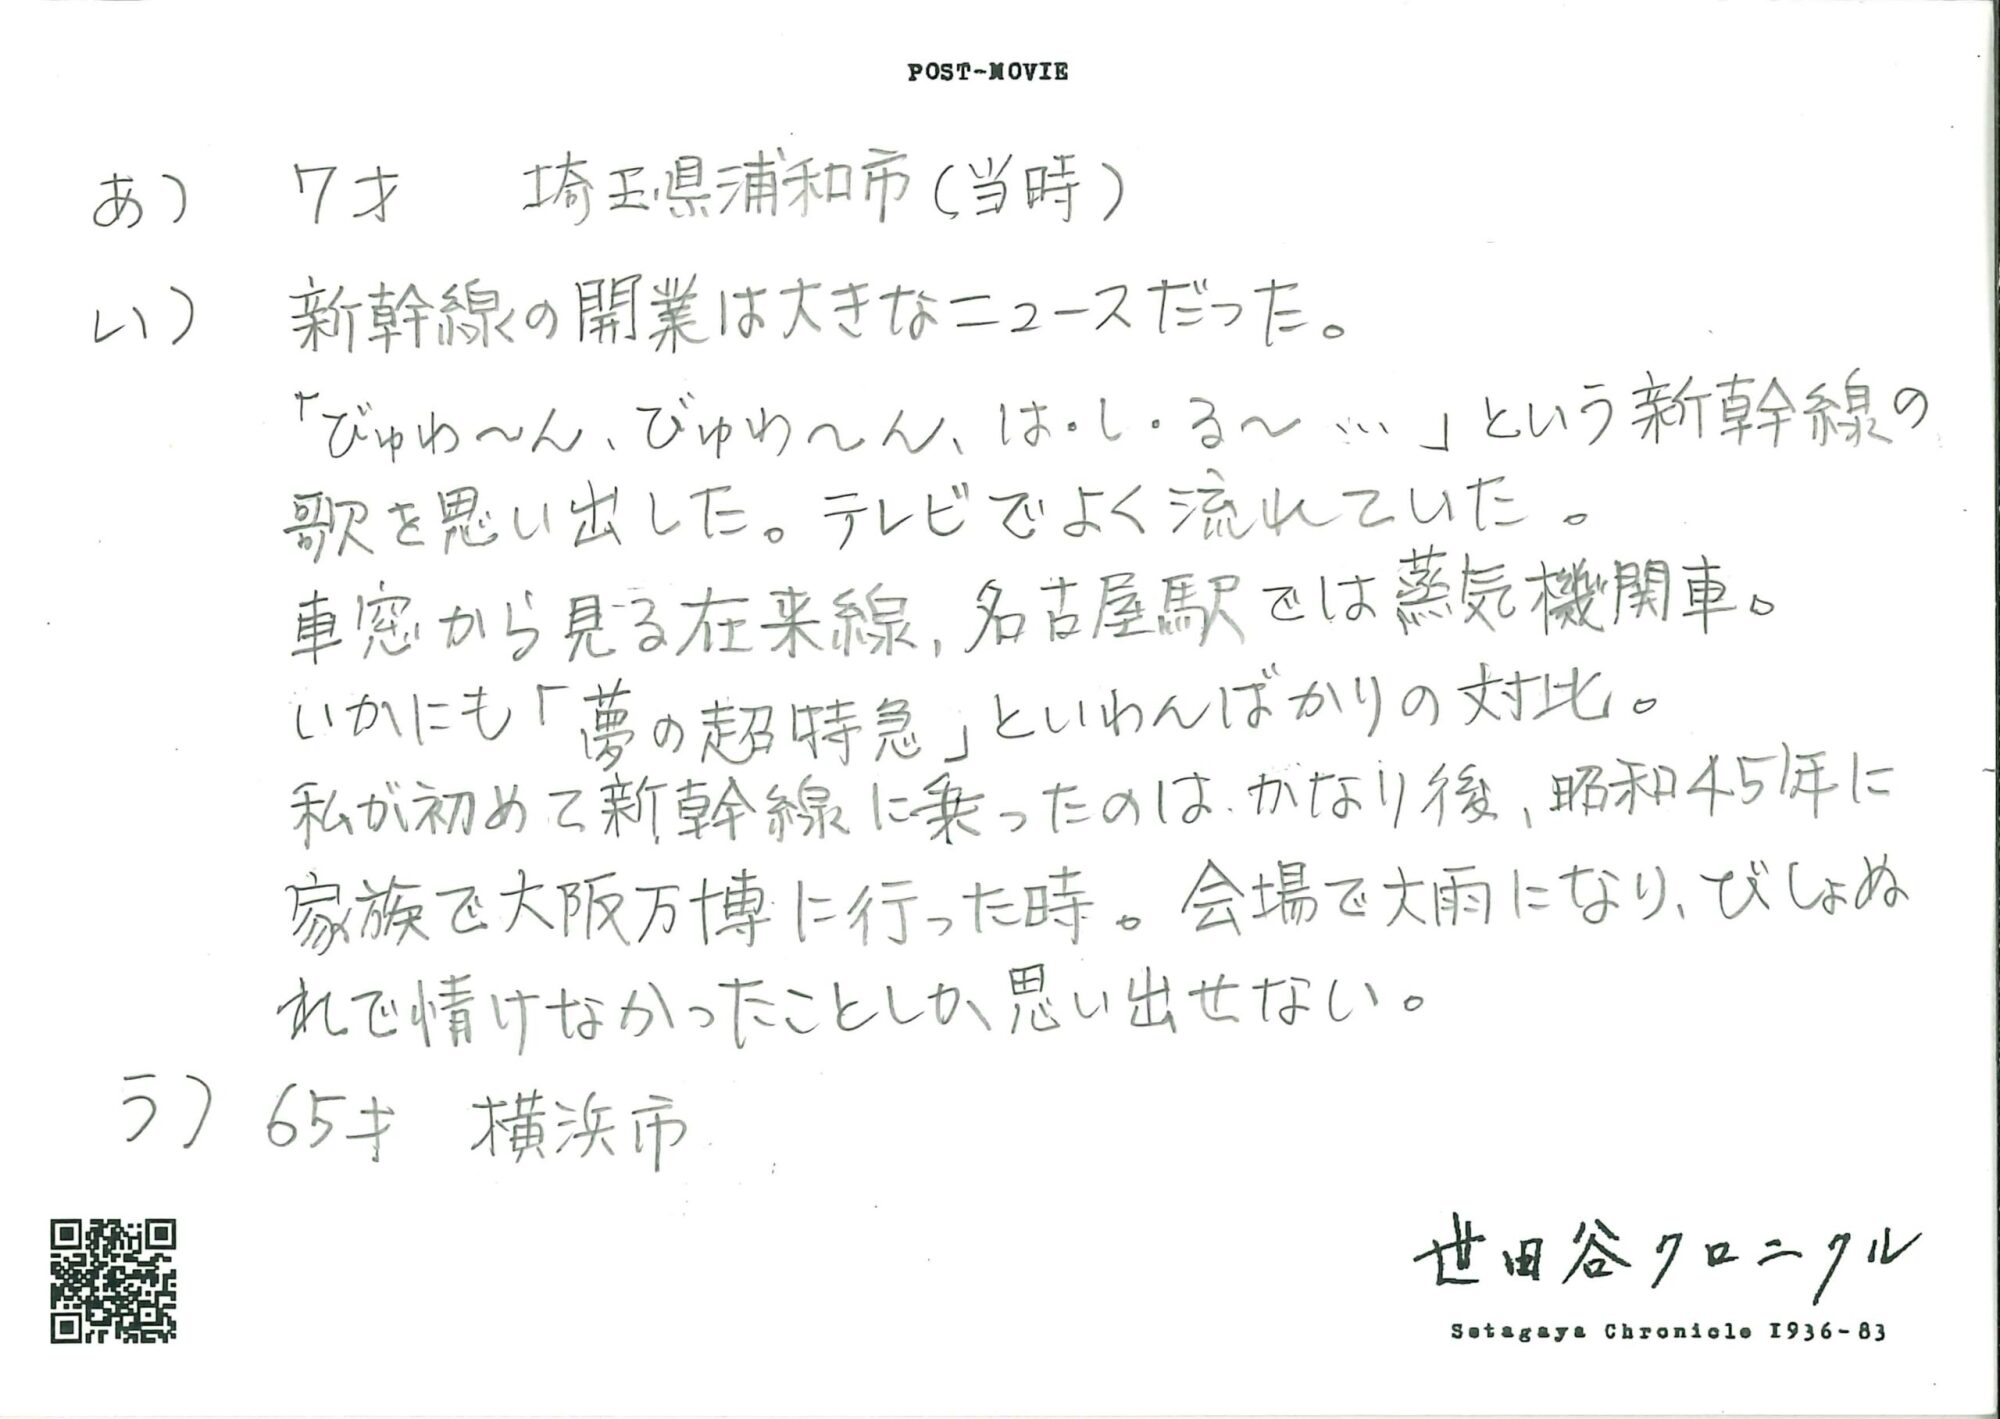 POST-MOVIE
あ) 7才 埼玉県浦和市(当時)
い) 新幹線の開業は大きなニュースだった。
「びゅわ〜ん、びゅわ〜ん、は・し・る〜…」という新幹線の
歌を思い出した。テレビでよく流れていた。
車窓から見る在来線、名古屋駅では蒸気機関車。
いかにも「夢の超特急」といわんばかりの対比。
私が初めて新幹線に乗ったのは、かなり後、昭和45年に
家族で大阪万博に行った時。会場で大雨になり、びしょぬ
れで情けなかったことしか思い出せない。
う) 65才 横浜市
世田谷クロニクル
Setagaya Chronicle 1936-83